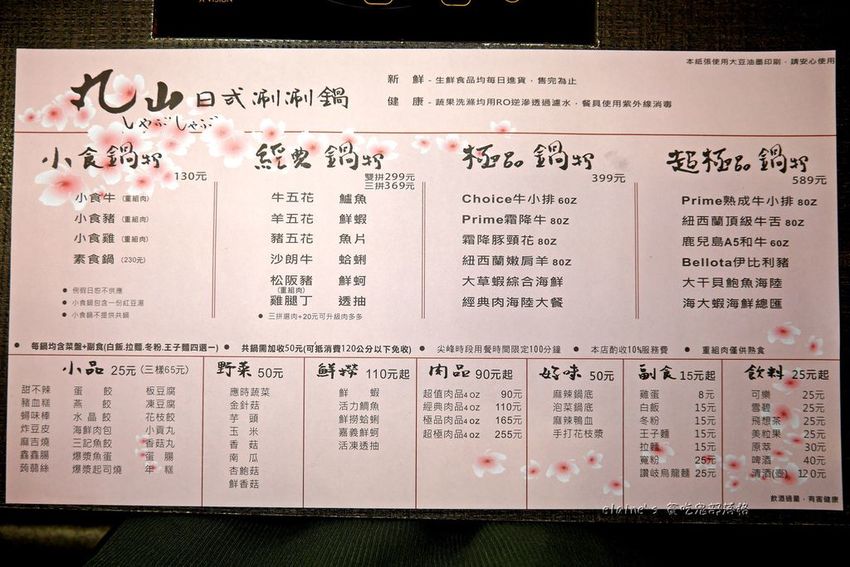 本紙張使用大豆油墨印刷，請安心使用
丸山日式涮涮鍋
しゃぶしゃぶ
新 鮮 - 生鮮食品均每日進貨，售完為止
健 康 - 蔬果洗滌均用RO逆滲透過濾水，餐具使用紫外線消毒
小食鍋物 130元
小食牛 (重組肉)
小食豬 (重組肉)
小食雞 (重組肉)
素食鍋 (230元)
● 例假日恕不供應
● 小食鍋包含一份紅豆湯
● 小食鍋不提供共鍋
經典鍋物 雙拼299元
三拼369元
牛五花 鱸魚
羊五花 鮮蝦
豬五花 魚片
沙朗牛 蛤蜊
松阪豬 鮮蚵
(重組肉)
雞腿丁 透抽
● 三拼選肉+20元可升級肉多多
極品鍋物 399元
Choice牛小排 6OZ
Prime霜降牛 8OZ
霜降豚頸花 8OZ
紐西蘭嫩肩羊 8OZ
大草蝦綜合海鮮
經典肉海陸大餐
超極品鍋物 589元
Prime熟成牛小排 8OZ
紐西蘭頂級牛舌 8OZ
鹿兒島A5和牛 6OZ
Bellota伊比利豬
大干貝鮑魚海陸
海大蝦海鮮總匯
● 每鍋均含菜盤+副食(白飯.拉麵.冬粉.王子麵四選一) ● 共鍋需加收50元(可抵消費120公分以下免收) ● 尖峰時段用餐時間限定100分鐘 ● 本店酌收10%服務費 ● 重組肉僅供熟食
小品 25元 (三樣65元)
甜不辣 蛋餃 板豆腐
豬血糕 燕餃 凍豆腐
蟳味棒 水晶餃 花枝餃
炸豆皮 海鮮肉包 小貢丸
麻吉燒 三記魚餃 香菇丸
鑫鑫腸 爆漿魚蛋 蛋腸
蒟蒻絲 爆漿起司燒 年糕
野菜 50元
應時蔬菜
金針菇
芋頭
玉米
香菇
南瓜
杏鮑菇
鮮香菇
鮮撈 110元起
鮮蝦
活力鯛魚
鮮撈蛤蜊
嘉義鮮蚵
活凍透抽
肉品 90元起
超值肉品4oz 90元
經典肉品4oz 110元
極品肉品4oz 165元
超極肉品4oz 255元
好味 50元
麻辣鍋底
泡菜鍋底
麻辣鴨血
手打花枝漿
副食 15元起
雞蛋 8元
白飯 15元
冬粉 15元
王子麵 15元
拉麵 15元
寬粉 25元
讚岐烏龍麵 25元
飲料 25元起
可樂 25元
雪碧 25元
飛想茶 25元
美粒果 25元
原萃 30元
啤酒 40元
清酒(壺) 120元
飲酒過量，有害健康
elaine's 貪吃鬼部落格